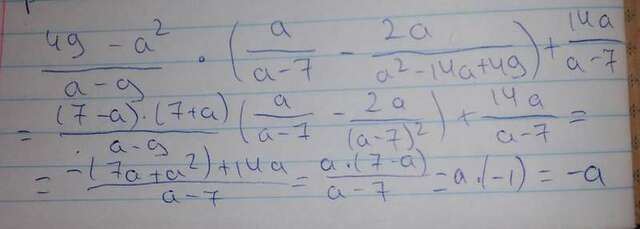 (49 - a²)/(a - 9) · (a/(a-7) - 2a/(a²-14a+49)) + 14a/(a-7)
= (7-a)·(7+a)/(a-9) (a/(a-7) - 2a/(a-7)²) + 14a/(a-7) =
= (-(7a+a²)+14a)/(a-7) = a·(7-a)/(a-7) = a·(-1) = -a